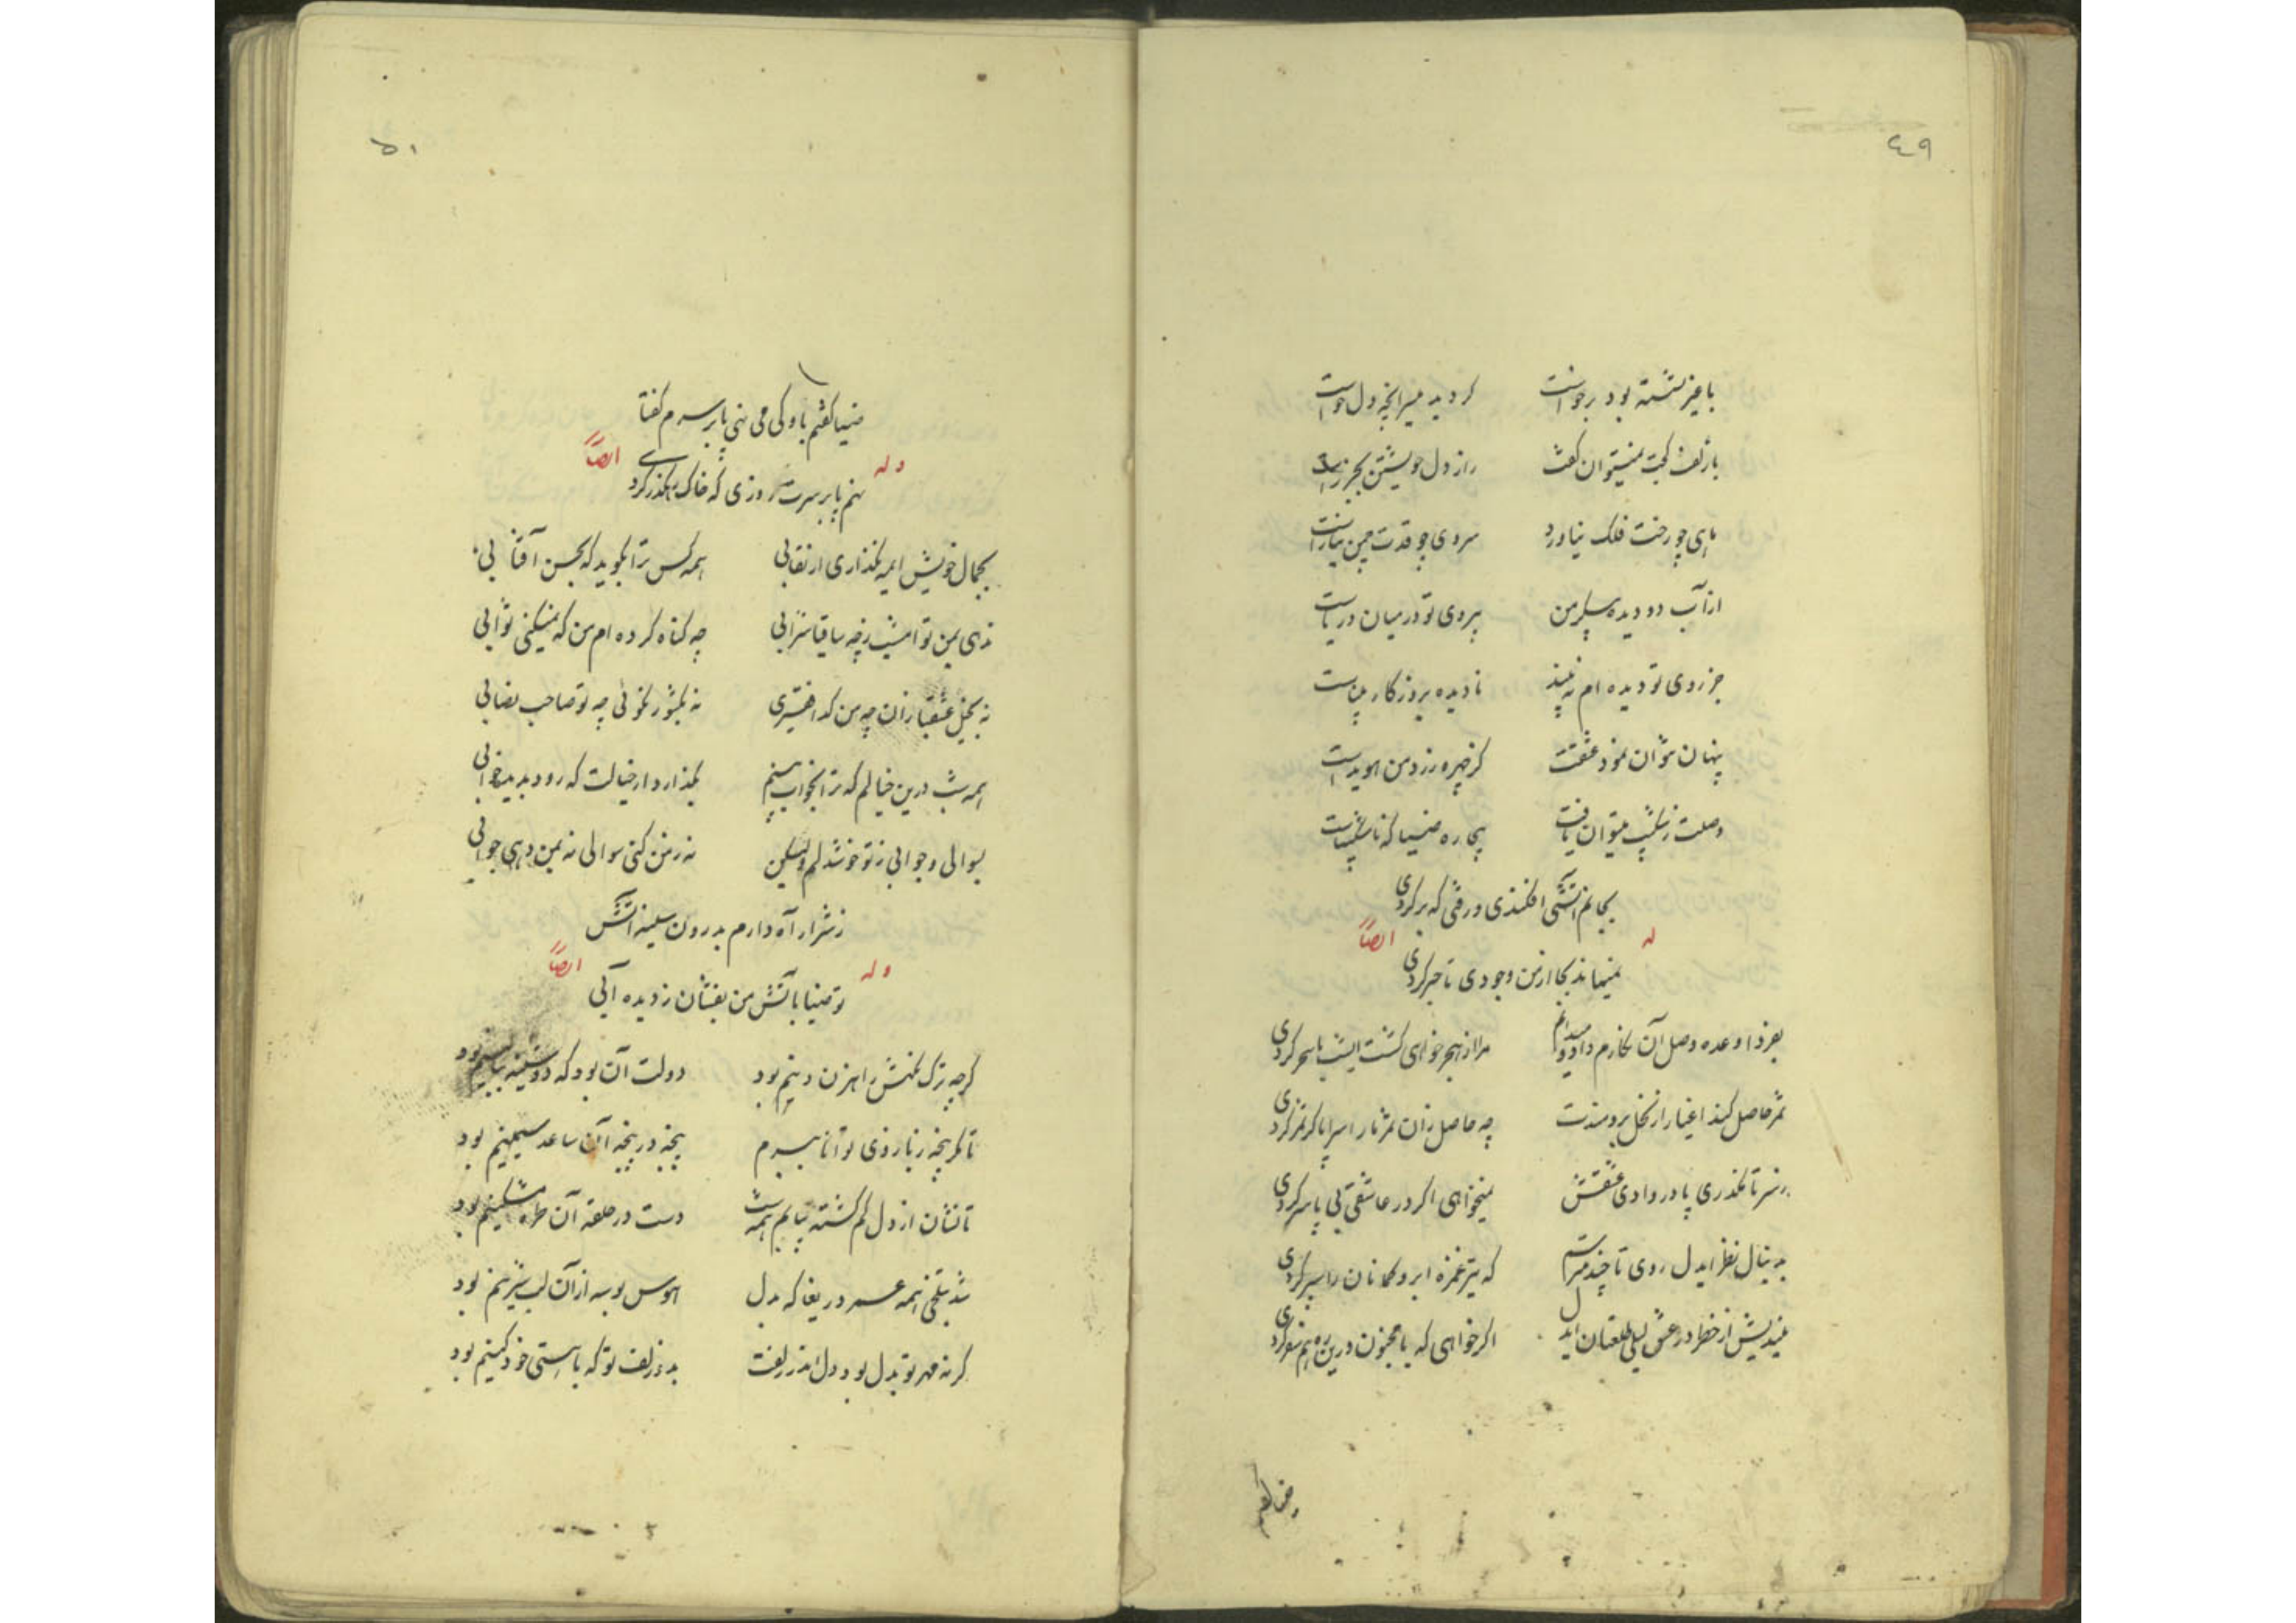 ٤٩
با غیر نشسته بود برخواست گردید میسر آنچه دل خواست
با زلف کجت نمیتوان گفت راز دل خویشتن بجز راست
ماهی چو رخت فلک نیاورد سروی چو قدت چمن نیاراست
از آب دو دیده سپلر من پروی تو در میان دریاست
جز روی تو دیده ام نه بیند نادیده بروزگار بیناست
پنهان نتوان نمود عشقت کز چهره زرد من هویداست
وصلت ز شکیب میتوان یافت بیچاره ضیا که ناشکیباست
بجانم آتشی افکندی و رفتی که برگردی
له ایضاً
نمیماند بجا از من وجودی تا خبر گردی
بفردا وعده وصل آن نگارم داد و میدانم مرا از هجر خواهی کشت امشب تا سحر گردی
ثمر حاصل کند اغیار از نخل برومندت چه حاصل زان ثمر ما را سراپا گر ثمر گردی
ز سر تا نگذری پا در وادی عشقش نمیخواهی اگر در عاشقی بی پا و سر گردی
به دنبال نظر ایدل روی تا چند میترسم که تیر غمزه ابرو کمانان را سپر گردی
میندیش از خطر در عشق لیلی طلعتان ایدل اگر خواهی که با مجنون درین ره هم سفر گردی
ضیا گفتم
٥٠
ضیا گفتم باو کی می نهی پا بر سرم گفتا
وله ایضاً
نهم پا بر سرت روزی که خاک رهگذر گردی
بجمال خویش ایمه نگذاری ار نقابی همه کس ترا بگوید که بحسن آفتابی
ندهی بمن تو امشب ز چه ساقیا شرابی چه گناه کرده ام من که نمیکنی ثوابی
نه بخیل عشقبازان چه من گدا فقیری نه بکشور نکوئی چه تو صاحب نصابی
همه شب درین خیالم که ترا بخواب بینم نگذارد ار خیالت که رود بدیده خوابی
بسوالی و جوابی ز تو خوشدلم ولیکن نه ز من کنی سوالی نه بمن دهی جوابی
ز شرار آه دارم بدرون سینه آتش
وله ایضاً
تو ضیا بآتش من بفشان ز دیده آبی
گرچه ترک نگهش راهزن دینم بود دولت آن بود که دوشینه ببالینم بود
تا مگر پنجه ز بازوی توانا ببرم پنجه در پنجه آن ساعد سیمینم بود
تا نشان از دل گم گشته بیابم همه شب دست در حلقه آن طره مشکینم بود
شد بتلخی همه عمر دریغا که بدل هوس بوسه از آن لب شیرینم بود
گر نه مهر تو بدل بود دل اندر زلفت بد ز زلف تو که با هستی خود کینم بود